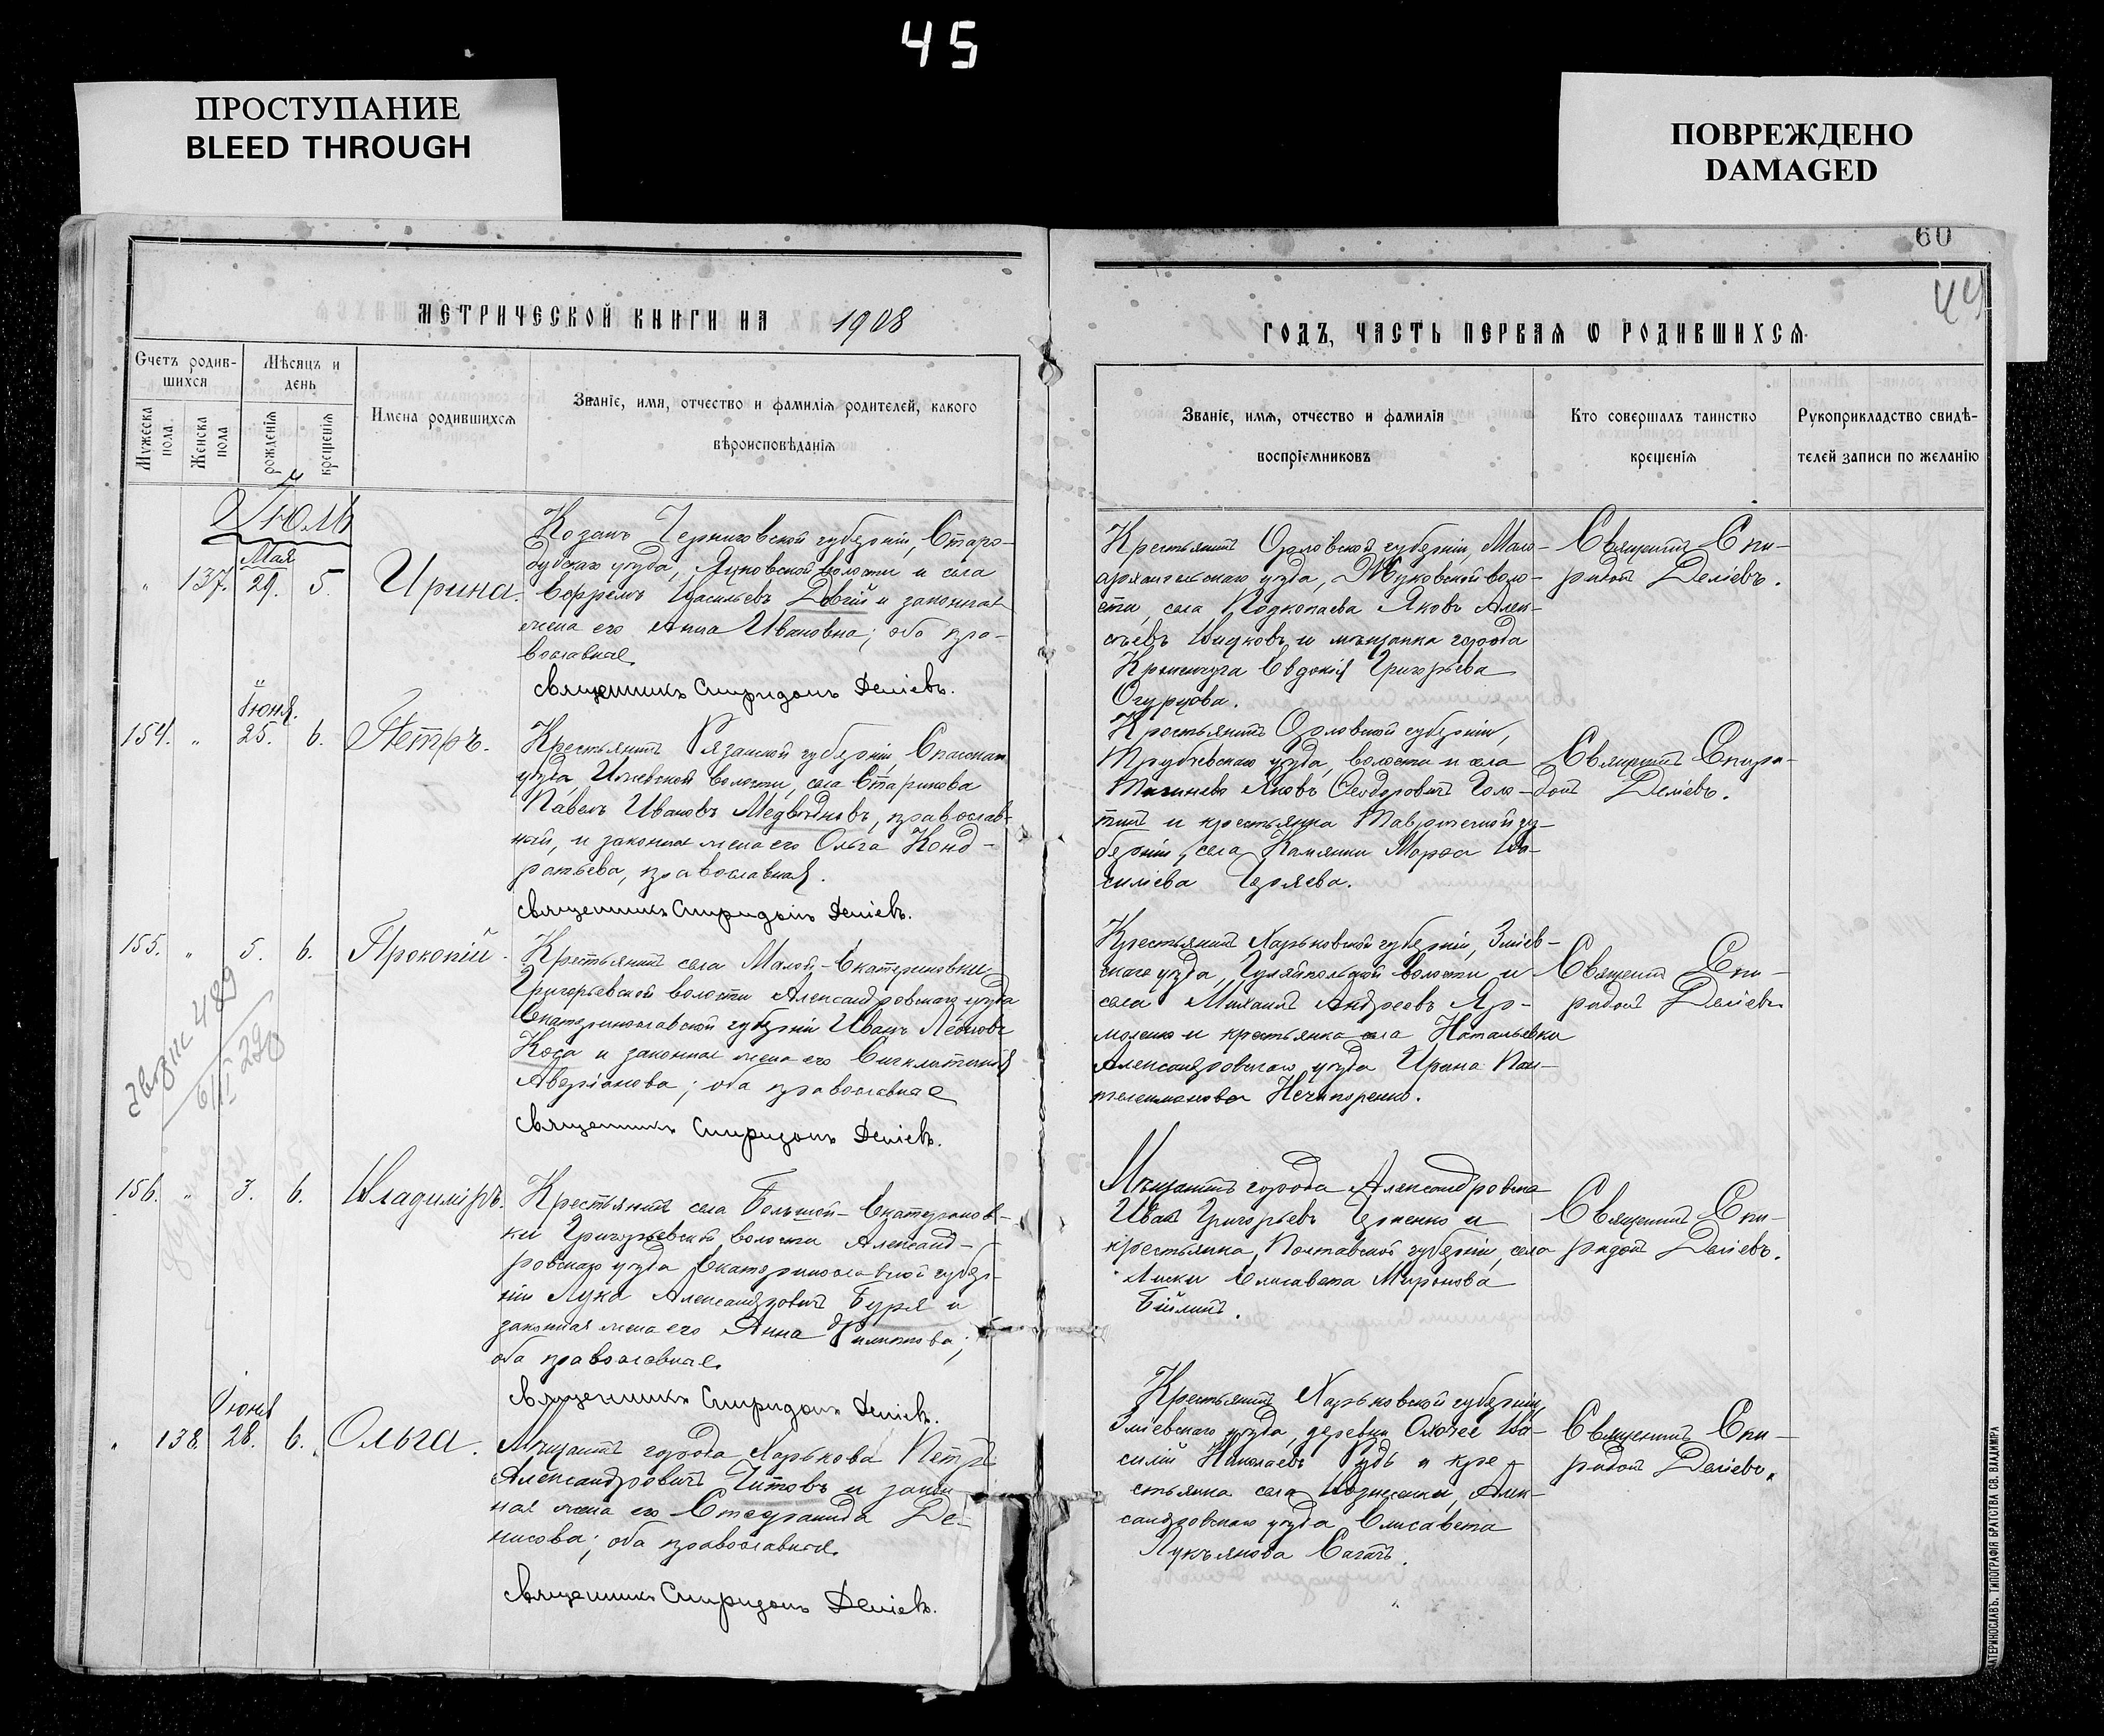 45
ПРОСТУПАНИЕ
BLEED THROUGH
ПОВРЕЖДЕНО
DAMAGED
60
44
МЕТРИЧЕСКОЙ КНИГИ НА 1908
ГОДЪ, ЧАСТЬ ПЕРВАЯ Ѡ РОДИВШИХСЯ
Счетъ родив-
шихся
Мужеска
пола.
Женска
пола
Мѣсяцъ и
день
рожденія
крещенія
Имена родившихся
Званіе, имя, отчество и фамилія родителей, какого
вѣроисповѣданія
Званіе, имя, отчество и фамилія
воспріемниковъ
Кто совершалъ таинство
крещенія
Рукоприкладство свидѣ-
телей записи по желанію
Іюль
Мая
" 137. 29. 5. Ирина.
Козакъ Черниговской губерніи, Старо-
дубскаго уѣзда, волости и села
Ефремъ Васильевъ Довгій и законная
жена его Анна Ивановна; оба пра-
вославные.
Священникъ Спиридонъ Деліевъ.
Крестьянинъ Орловской губерніи, Мало-
архангельскаго уѣзда, воло-
сти, села Подкопаева Яковъ Алек-
сѣевъ и мѣщанка города
Кременчуга Евдокія Григорьева
Огурцова.
Священникъ Спи-
ридонъ Деліевъ.
Іюня.
154. " 25. 6. Петръ.
Крестьянинъ Рязанской губерніи, Спасскаго
уѣзда, Ижевской волости, села Старикова
Павелъ Ивановъ Медвѣдковъ, православ-
ный, и законная жена его Ольга Конд-
ратьева, православная.
Священникъ Спиридонъ Деліевъ.
Крестьянинъ Орловской губерніи,
Трубчевскаго уѣзда, волости и села
Яковъ Ѳеодоровичъ Голо-
и крестьянка Таврической гу-
берніи, села Каменки Марѳа Ва-
силіева
Священникъ Спири-
донъ Деліевъ.
155. " 5. 6. Прокопій.
Крестьянинъ села Малой-Екатериновки,
Григорьевской волости Александровскаго уѣзда
Екатеринославской губерніи Иванъ Леоновъ
Коса и законная жена его Синклитикія
Аверіанова; оба православные
Священникъ Спиридонъ Деліевъ.
Крестьянинъ Харьковской губерніи, Зміев-
скаго уѣзда, волости и
села Михаилъ Андреевъ Яр-
моленко и крестьянка села Натальевки
Александровскаго уѣзда Ирина Пан-
телеимонова Нечипоренко.
Священникъ Спи-
ридонъ Деліевъ.
489
156. " 3. 6. Владиміръ.
Крестьянинъ села Большой-Екатеринов-
ки Григорьевской волости Александ-
ровскаго уѣзда Екатеринославской губер-
ніи Лука Александровичъ Буря и
законная жена его Анна Филиппова;
оба православные.
Священникъ Спиридонъ Деліевъ.
Мѣщанинъ города Александровска
Иванъ Григорьевъ и
крестьянка, Полтавской губерніи, села
Елисавета Миронова
Священникъ Спи-
ридонъ Деліевъ.
Іюня
" 138. 28. 6. Ольга.
Мѣщанинъ города Харькова Петръ
Александровичъ Титовъ и закон-
ная жена его Степанида Де-
нисова; оба православные.
Священникъ Спиридонъ Деліевъ.
Крестьянинъ Харьковской губерніи,
Зміевскаго уѣзда, деревни Охочее Ва-
силій Николаевъ Рудь и кре-
стьянка села Вознесенки, Алек-
сандровскаго уѣзда Елисавета
Лукьянова
Священникъ Спи-
ридонъ Деліевъ.
ЕКАТЕРИНОСЛАВЪ. ТИПОГРАФІЯ БРАТСТВА СВ. ВЛАДИМІРА